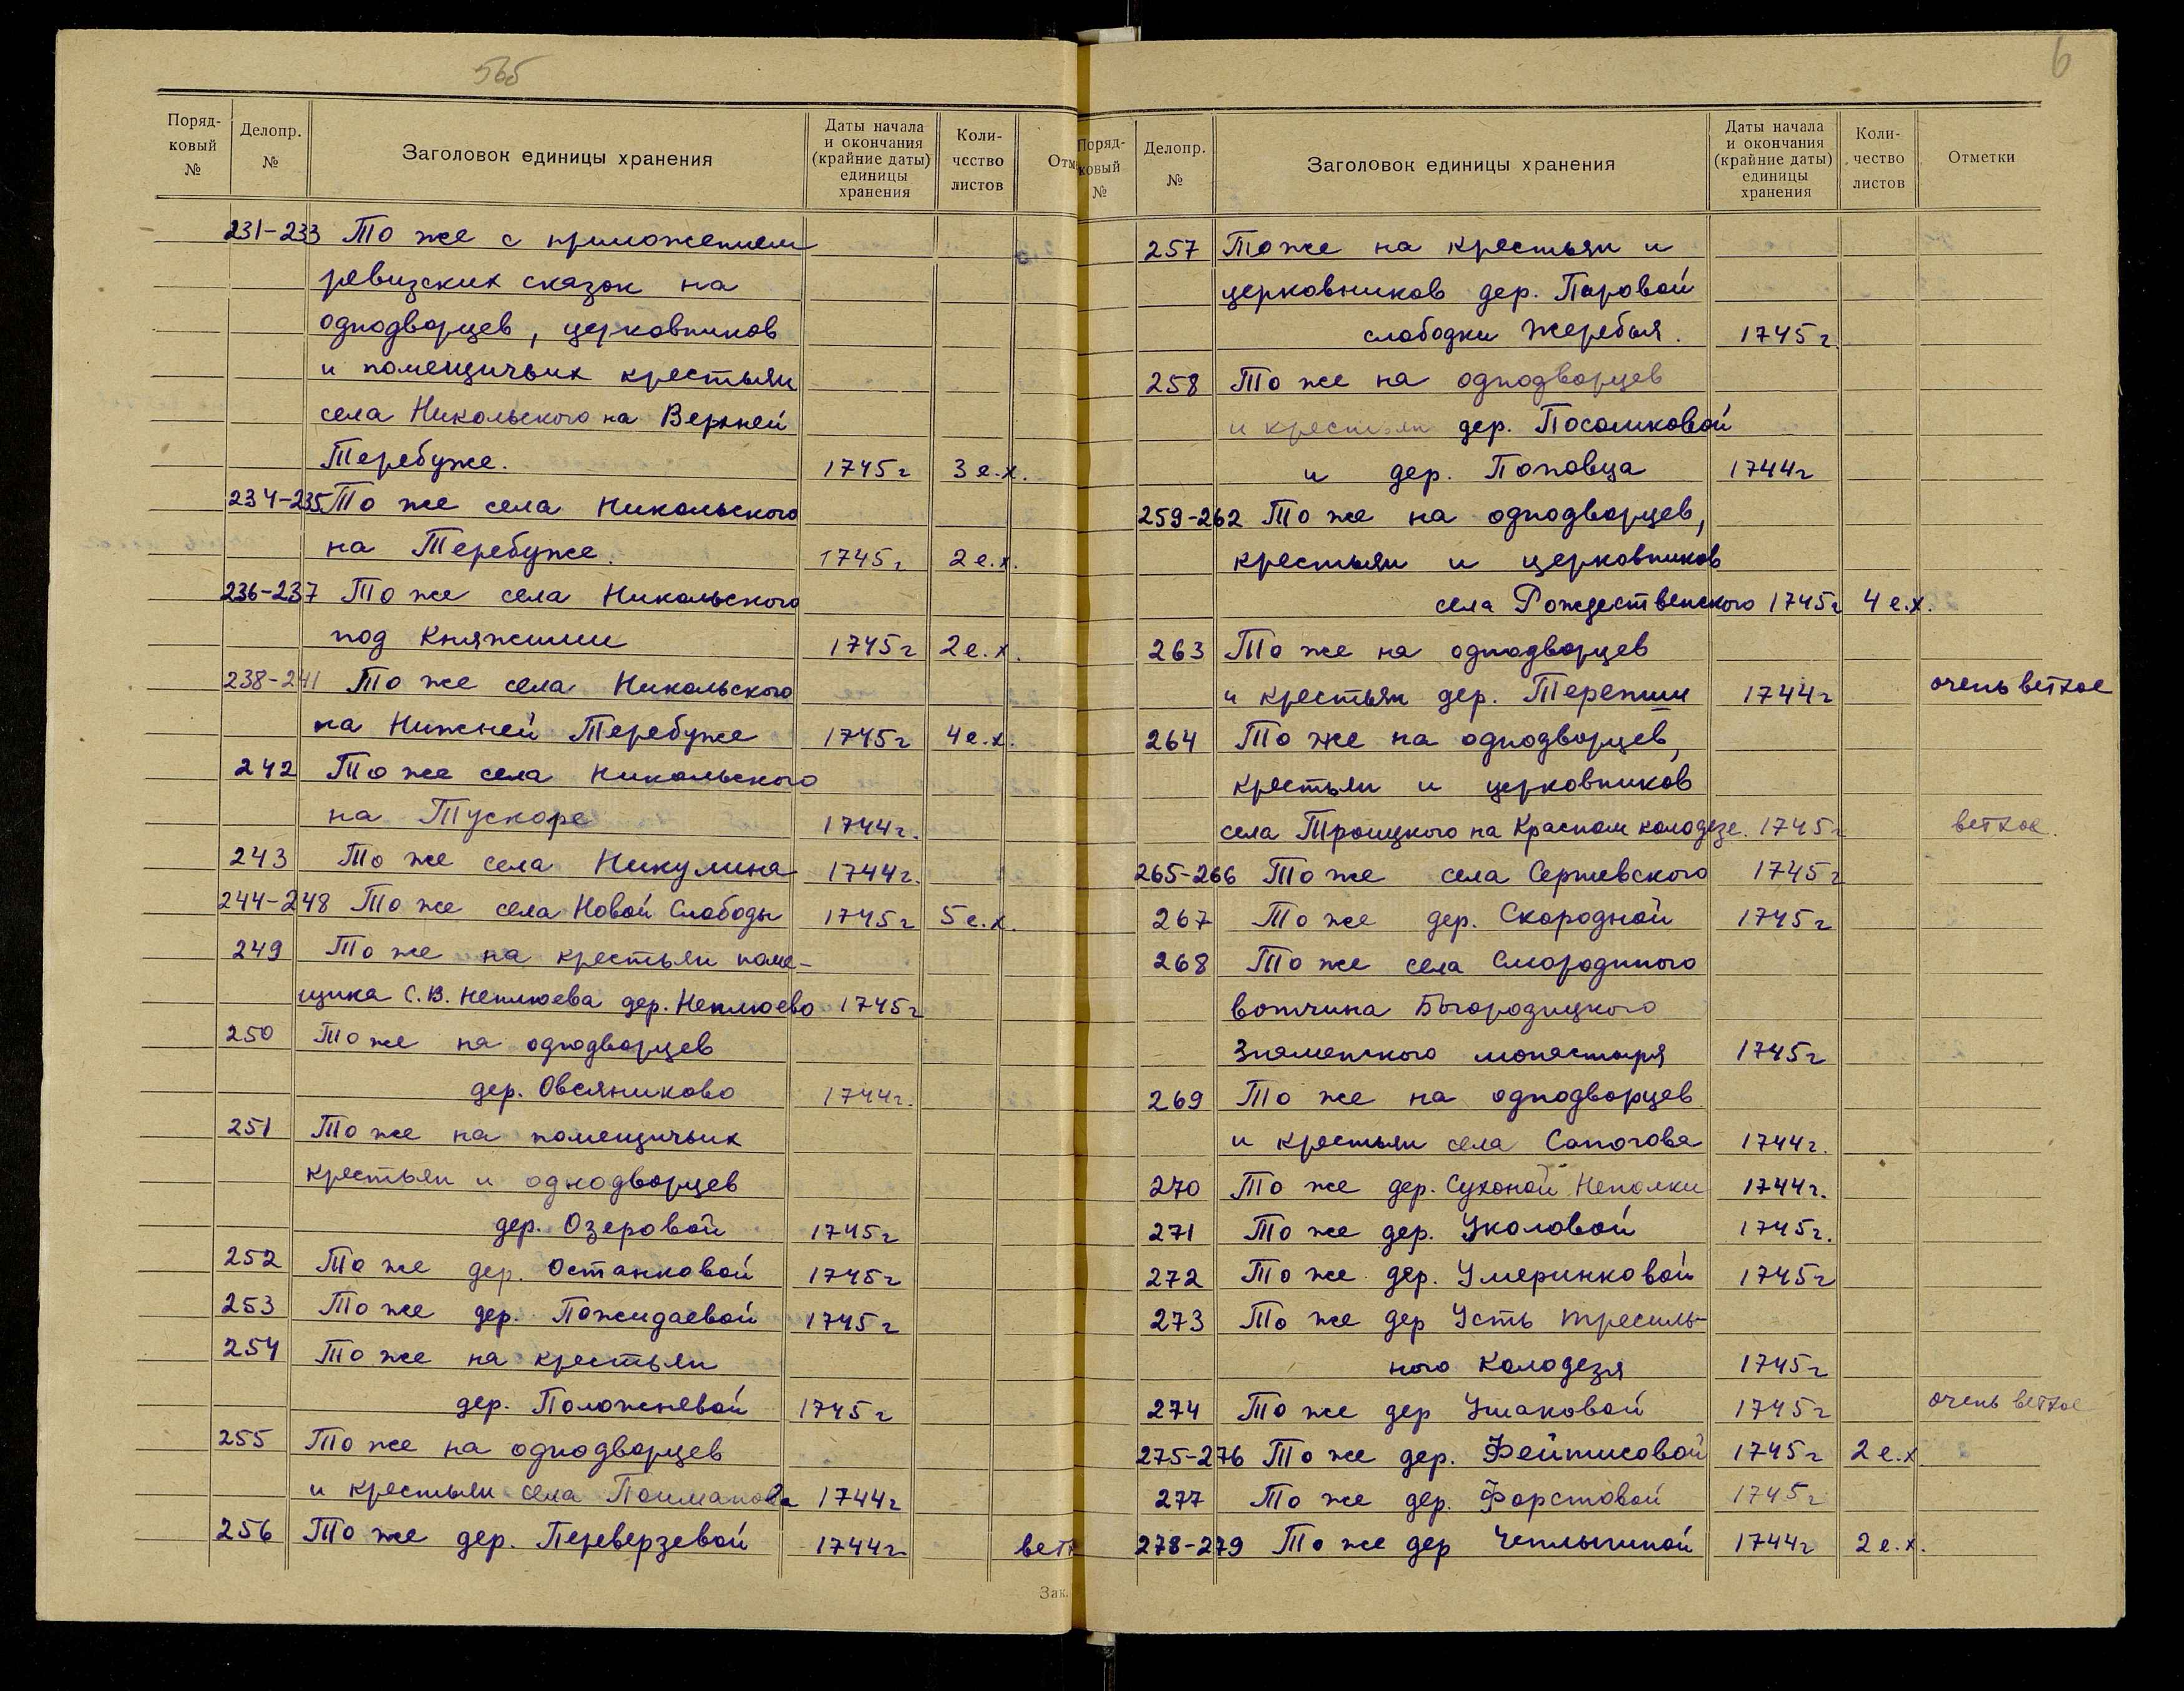 565
Поряд-
ковый
№
Делопр.
№
Заголовок единицы хранения
Даты начала
и окончания
(крайние даты)
единицы
хранения
Коли-
чество
листов
Отм
231-233 То же с приложением
ревизских сказок на
однодворцев, церковников
и помещичьих крестьян
села Никольского на Верхней
Теребуже. 1745г 3 е.х.
234-235 То же села Никольского
на Теребуже. 1745г 2 е.х.
236-237 То же села Никольского
под Княжими 1745г 2 е.х.
238-241 То же села Никольского
на Нижней Теребуже 1745г 4 е.х.
242 То же села Никольского
на Тускоре 1744г.
243 То же села Никулина 1744г.
244-248 То же села Новой Слободы 1745г 5 е.х.
249 То же на крестьян поме-
щика С.В. Неплюева дер. Неплюево 1745г
250 То же на однодворцев
дер. Овсяниково 1744г.
251 То же на помещичьих
крестьян и однодворцев
дер. Озеровой 1745г
252 То же дер. Останковой 1745г
253 То же дер. Пожидаевой 1745г
254 То же на крестьян
дер. Положневой 1745г
255 То же на однодворцев
и крестьян села Поиманова 1744г
256 То же дер. Переверзевой 1744г вет
Зак.
6
Поряд-
ковый
№
Делопр.
№
Заголовок единицы хранения
Даты начала
и окончания
(крайние даты)
единицы
хранения
Коли-
чество
листов
Отметки
257 То же на крестьян и
церковников дер. Паровой
слободки Жеребья. 1745г.
258 То же на однодворцев
и крестьян дер. Посошковой
и дер. Поповца 1744г
259-262 То же на однодворцев,
крестьян и церковников
села Рождественского 1745г 4 е.х.
263 То же на однодворцев
и крестьян дер. Терепши 1744г очень ветхое
264 То же на однодворцев,
крестьян и церковников
села Троицкого на Красном колодезе. 1745г ветхое.
265-266 То же села Сергиевского 1745г
267 То же дер. Скородной 1745г
268 То же села Смородиного
вотчина Богородицкого
Знаменского монастыря 1745г
269 То же на однодворцев
и крестьян села Сапогова 1744г.
270 То же дер. Сухоной Неполки 1744г.
271 То же дер. Уколовой 1745г.
272 То же дер. Умеринковой 1745г
273 То же дер Усть тресиль-
ного Колодезя 1745г
274 То же дер Ушаковой 1745г очень ветхое
275-276 То же дер. Фейтисовой 1745г 2 е.х
277 То же дер. Форстовой 1745г
278-279 То же дер Чеплыгиной 1744г 2 е.х.